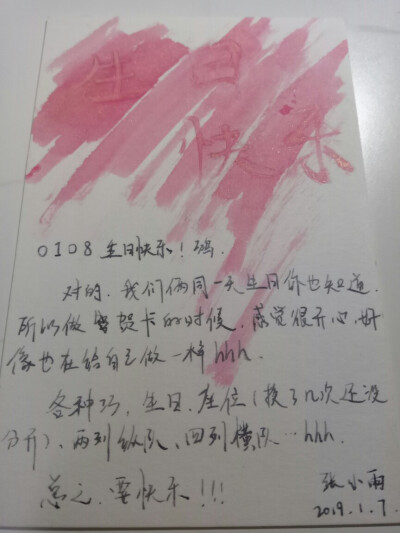 生日
快乐
0108 生日快乐！
对的，我们俩同一天生日你也知道，
所以做贺卡的时候，感觉很开心，好
像也在给自己做一样hhh.
各种巧，生日、座位（换了几次还没
分开）、两列纵队、四列横队…hhh.
总之，要快乐！！！
张小雨
2019.1.7.